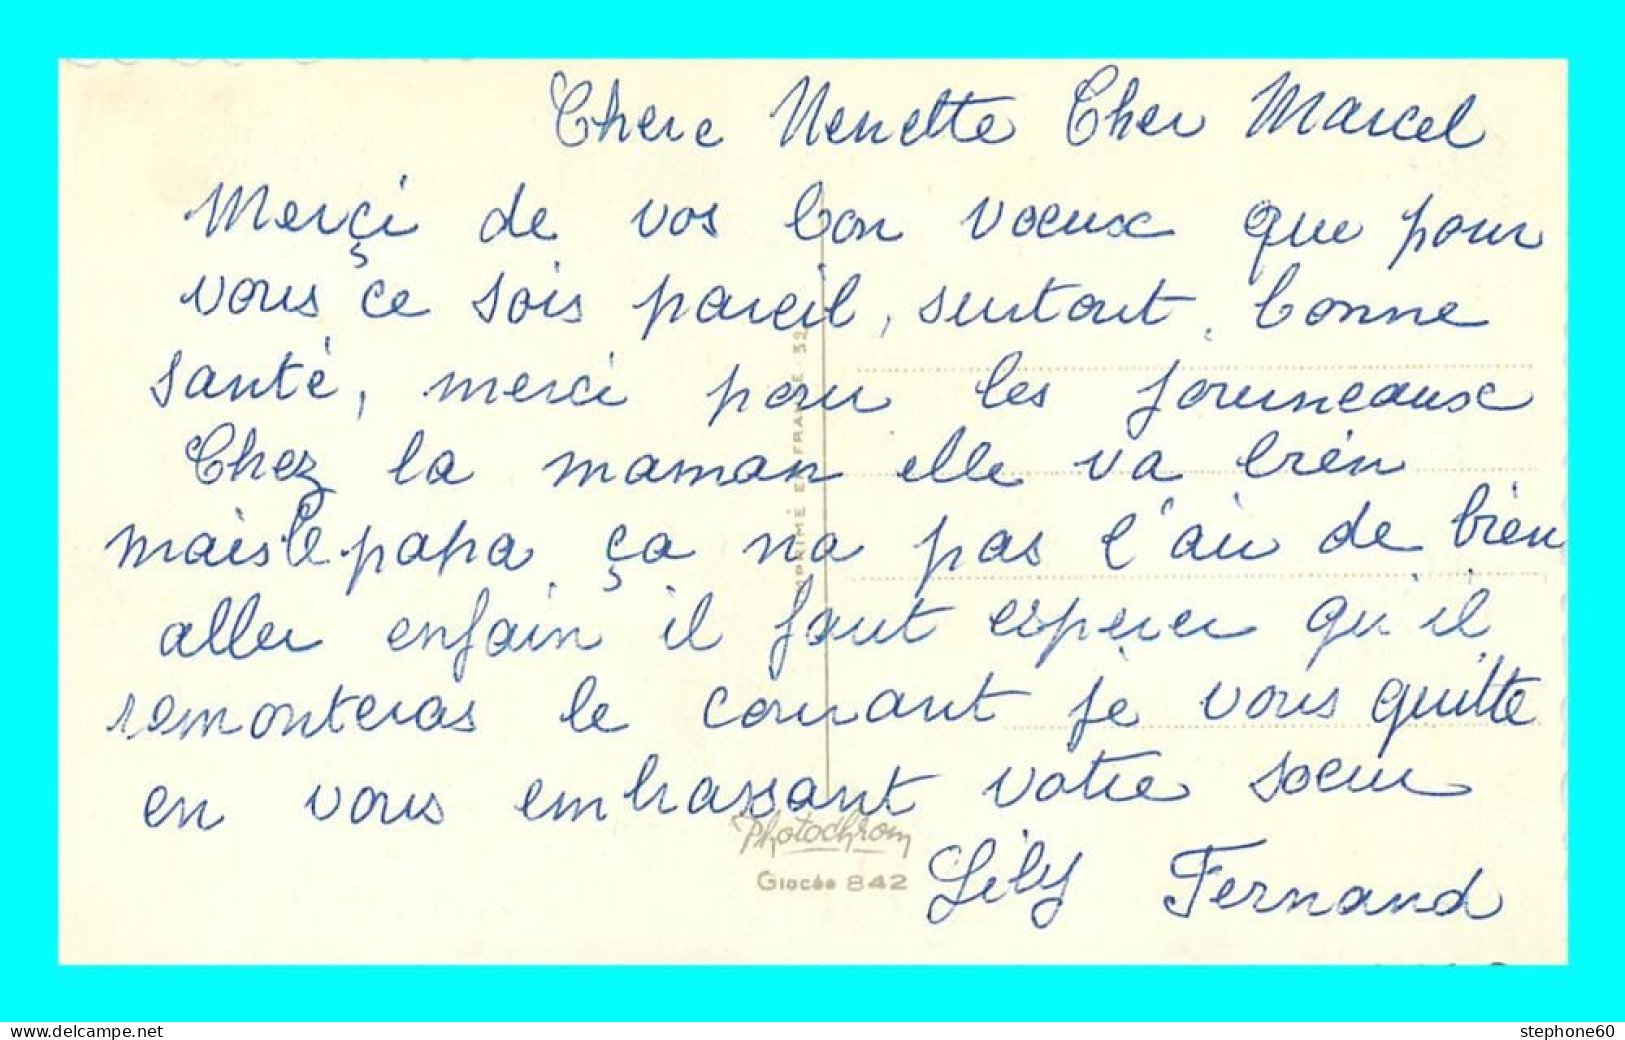 Chere Nenette Cher Marcel
Merçi de vos bon voeux que pour
vous ce sois pareil, surtout, bonne
santé, merci pour les journeaux
Chez la maman elle va bien
mais le papa ça na pas l'air de bien
aller enfain il faut esperer qu'il
remonteras le courant je vous quitte
en vous embrassant votre soeur
Lily Fernand
IMPRIMÉ EN FRANCE
Photochrom
Giocée 842
www.delcampe.net
stephone60